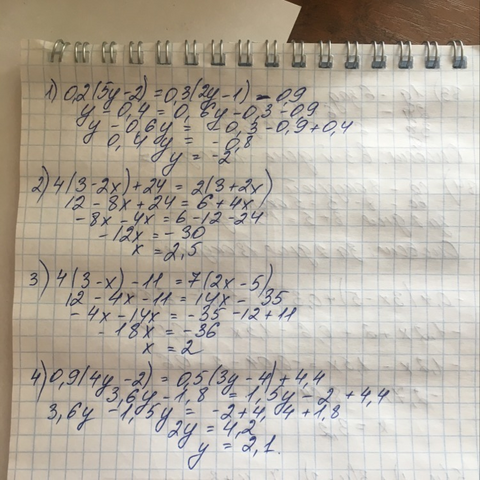 1) 0,2(5y-2) = 0,3(2y-1) - 0,9
y - 0,4 = 0,6y - 0,3 - 0,9
y - 0,6y = - 0,3 - 0,9 + 0,4
0,4y = - 0,8
y = -2
2) 4(3-2x) + 24 = 2(3+2x)
12 - 8x + 24 = 6 + 4x
-8x - 4x = 6 - 12 - 24
-12x = -30
x = 2,5
3) 4(3-x) - 11 = 7(2x-5)
12 - 4x - 11 = 14x - 35
-4x - 14x = -35 - 12 + 11
-18x = -36
x = 2
4) 0,9(4y-2) = 0,5(3y-4) + 4,4
3,6y - 1,8 = 1,5y - 2 + 4,4
3,6y - 1,5y = -2 + 4,4 + 1,8
2y = 4,2
y = 2,1.